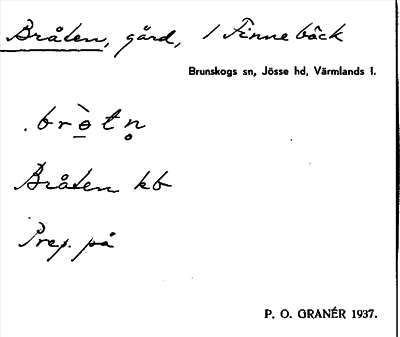 Bråten, gård, / Finnebäck
Brunskogs sn, Jösse hd, Värmlands l.
.brò̱tn̥
Bråten kb
Prep. på
P. O. GRANÉR 1937.